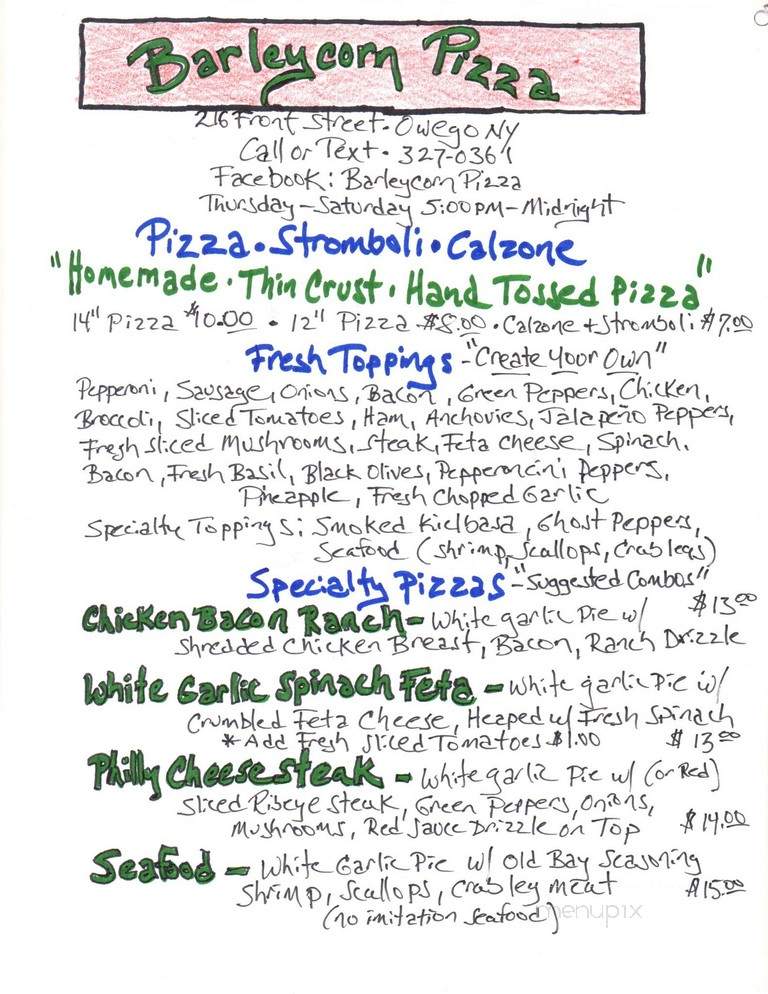 Barleycorn Pizza
216 Front Street • Owego NY
Call or Text • 327-0361
Facebook: Barleycorn Pizza
Thursday-Saturday 5:00 PM - Midnight
Pizza • Stromboli • Calzone
"Homemade • Thin Crust • Hand Tossed Pizza"
14" Pizza $10.00 • 12" Pizza $8.00 • Calzone + Stromboli $7.00
Fresh Toppings - "Create Your Own"
Pepperoni, Sausage, Onions, Bacon, Green Peppers, Chicken,
Broccoli, Sliced Tomatoes, Ham, Anchovies, Jalapeño Peppers,
Fresh Sliced Mushrooms, Steak, Feta Cheese, Spinach,
Bacon, Fresh Basil, Black Olives, Pepperoncini Peppers,
Pineapple, Fresh Chopped Garlic
Specialty Toppings: Smoked Kielbasa, Ghost Peppers,
Seafood (Shrimp, Scallops, Crab legs)
Specialty Pizzas - "Suggested Combos"
Chicken Bacon Ranch - White garlic Pie w/ $13.00
Shredded Chicken Breast, Bacon, Ranch Drizzle
White Garlic Spinach Feta - White garlic Pie w/
Crumbled Feta Cheese, Heaped w/ Fresh Spinach
* Add Fresh Sliced Tomatoes $1.00 $13.00
Philly Cheesesteak - White garlic Pie w/ (or Red)
Sliced Ribeye Steak, Green Peppers, Onions,
Mushrooms, Red Sauce Drizzle on Top $14.00
Seafood - White Garlic Pie w/ Old Bay Seasoning
Shrimp, Scallops, Crab leg meat $15.00
(no imitation seafood)
menupix